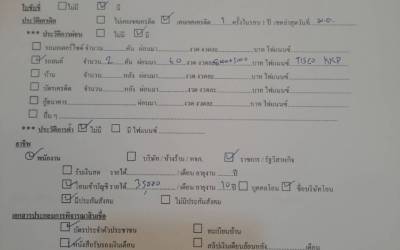 ใบขับขี่ ☐ ไม่มี ☑ มี
ประวัติเครดิต ☐ ไม่เคยเช็คเครดิต ☑ เคยเช็คเครดิต 1 ครั้งในรอบ 1 ปี เช็คล่าสุดวันที่ พ.ย.
*** ประวัติการผ่อน ☐ ไม่มี ☑ มี
☐ รถมอเตอร์ไซค์ จำนวน......คัน ผ่อนมา......งวด งวดละ......บาท ไฟแนนซ์......
☑ รถยนต์ จำนวน 2 คัน ผ่อนมา 60 งวด งวดละ บาท ไฟแนนซ์ TISCO KKP
☐ บ้าน จำนวน......หลัง ผ่อนมา......งวด งวดละ......บาท ไฟแนนซ์......
☐ บัตรเครดิต จำนวน......ใบ ผ่อนมา......งวด งวดละ......บาท ไฟแนนซ์......
☐ กู้ธนาคาร......ผ่อนมา......งวด งวดละ......บาท ไฟแนนซ์......
☐ อื่น ๆ......
*** ประวัติการค้ำ ☑ ไม่มี ☐ มี ไฟแนนซ์......
อาชีพ
☑ พนักงาน ☐ บริษัท / ห้างร้าน / หจก. ☑ ราชการ / รัฐวิสาหกิจ
☐ รับเงินสด รายได้......./เดือน อายุงาน......ปี
☑ โอนเข้าบัญชี รายได้ 35,000 /เดือน อายุงาน 10 ปี ☐ บุคคลโอน ☑ ชื่อบริษัทโอน
☑ มีประกันสังคม ☐ ไม่มีประกันสังคม
เอกสารประกอบการพิจารณาสินเชื่อ
☑ บัตรประจำตัวประชาชน ☐ ทะเบียนบ้าน
☐ หนังสือรับรองเงินเดือน ☐ สลิปเงินเดือนย้อนหลัง......เดือน